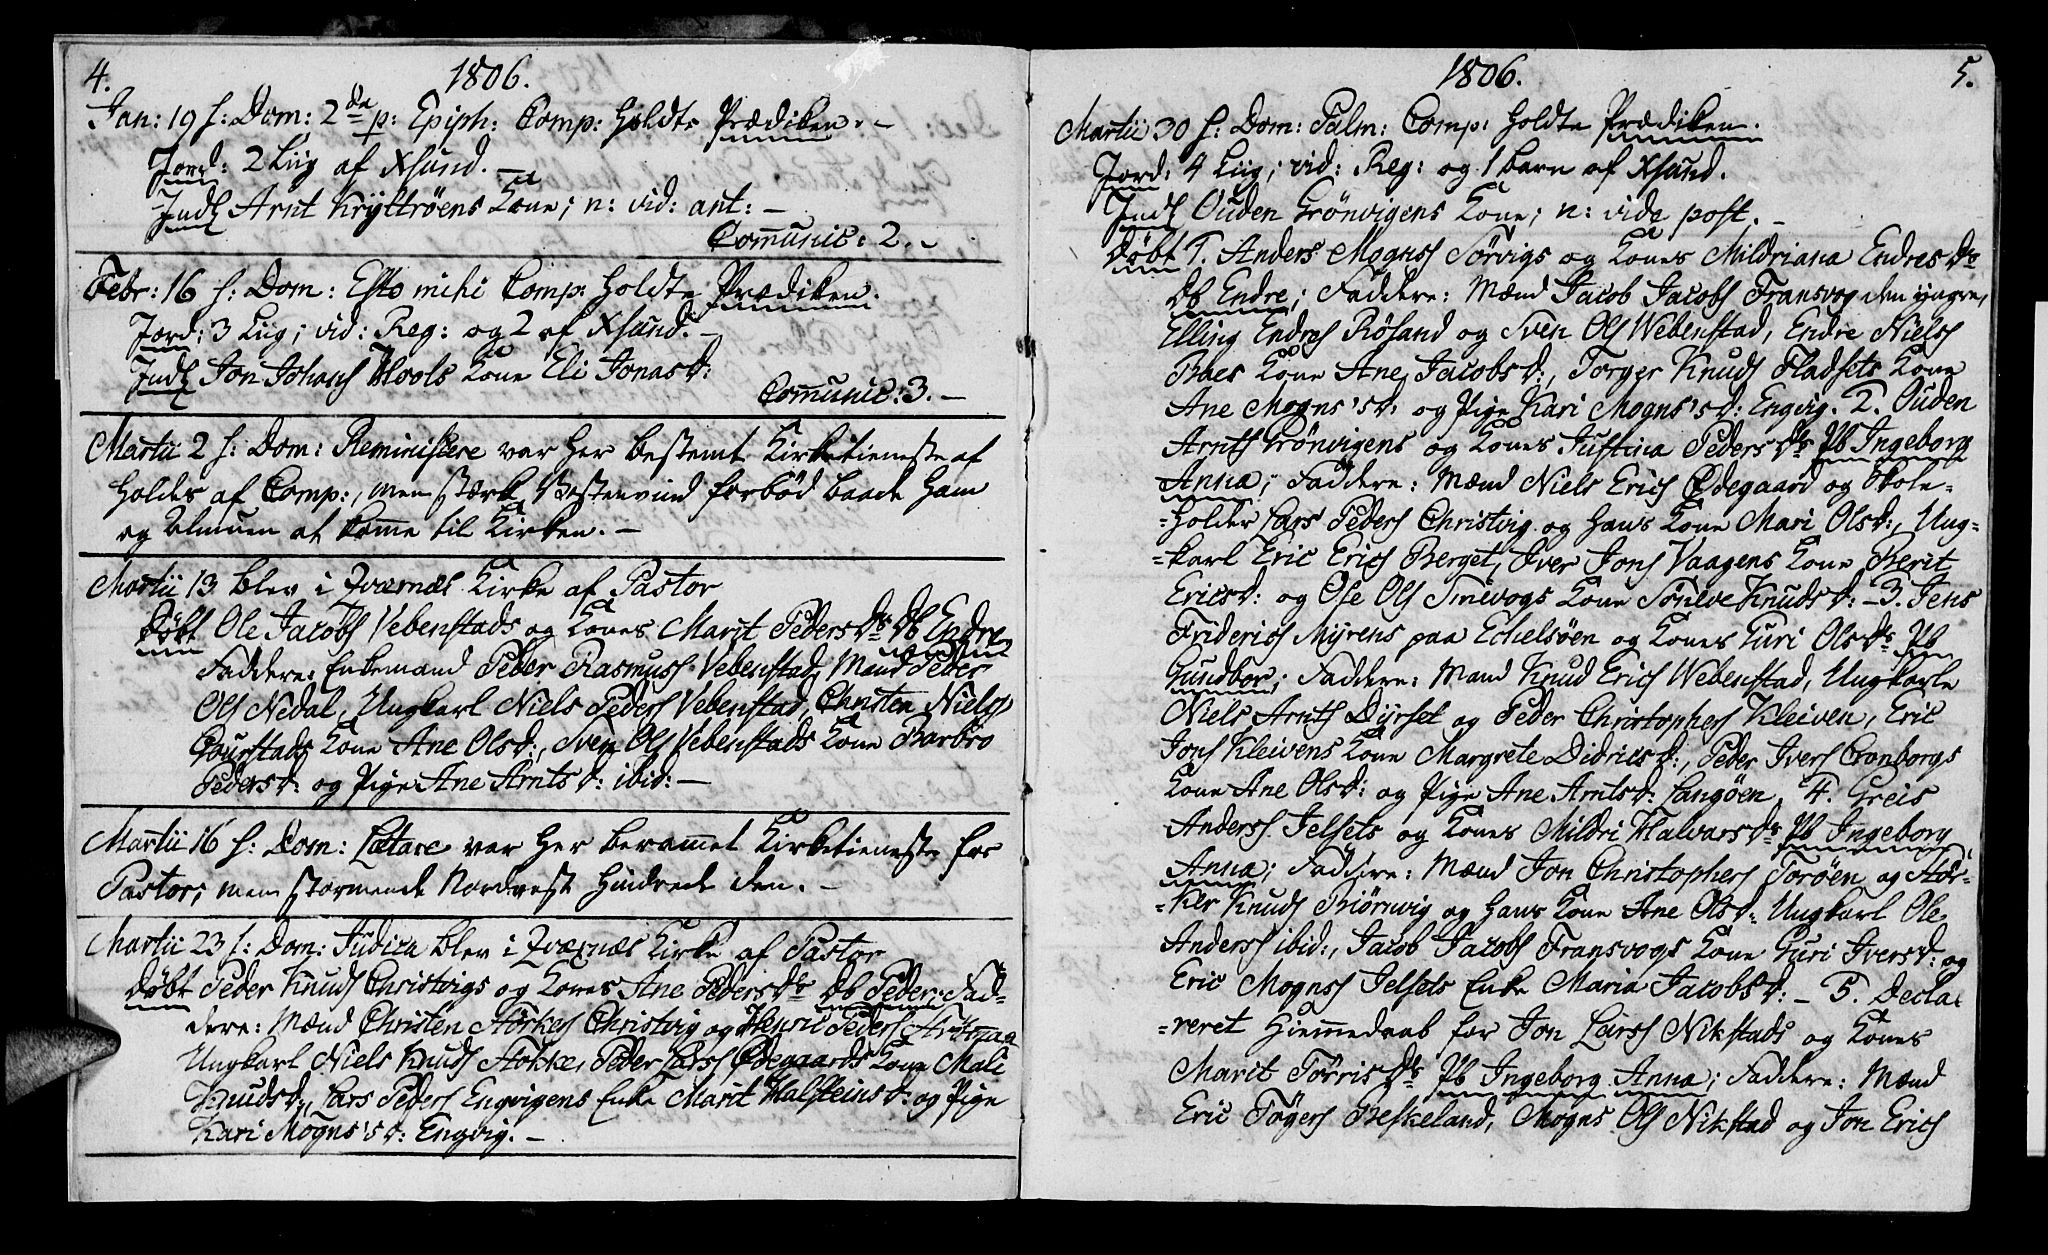 4. 1806.
Jan: 19 s: Dom: 2de p: Epiph: Comp: holdte Prædiken. –
Jord: 2 Liig af Xsund. –
Indl Arnt Kryttröens Kone; n: vid: ant: –
Comunic: 2. –
Febr: 16 s: Dom: Esto mihi Comp: holdte Prædiken.
Jord: 3 Liig; vid: Reg: og 2 af Xsund. –
Indl Jon Johans Kone Eli Jonasd:
Comunic: 3. –
Martii 2 s: Dom: Reminiscere var her bestemt Kirketieneste at
holdes af Comp:, men stærk Vestenvind forbød baade ham
og Almuen at komme til Kirken. –
Martii 13 blev i Qværnæs Kirke af Pastor
Döbt Ole Jacobs Vebenstads og Kones Marit Pedersdr Db Endre
Faddere: Enkemand Peder Rasmuss Vebenstad, Mand Peder
Ols Nedal, Ungkarl Niels Peders Vebenstad, Christen Niels
Gourstads Kone Ane Olsd:, Sven Ols Vebenstads Kone Barbro
Pedersd: og Pige Ane Arntsd: ibid: –
Martii 16 s: Dom: Lætare var her berammet Kirketieneste for
Pastor; men stormende Nordvest hindrede den. –
Martii 23 s: Dom: Judica blev i Qværnæs Kirke af Pastor
döbt Peder Knuds Christvigs og Kones Ane Pedersdr Db Peder; Fad=
dere: Mænd Christen Störkers Christvig og Henric Peders
Ungkarl Niels Knuds Stokke, Peder Larss Ødegaards Kone Mali
Knudsd:, Lars Peders Engvigens Enke Marit Halsteinsd: og Pige
Kari Mogns'sd: Engvig. –
1806. 5.
Martii 30 s: Dom: Palm: Comp: holdte Prædiken.
Jord: 4 Liig; vid: Reg: og 1 barn af Xsund.
Indl Ouden Grönvigens Kone; n: vide post. –
Döbt 1. Anders Mognss Sörvigs og Kones Mildriana Endresdr
Db Endre; Faddere: Mænd Jacob Jacobs Fransvog den yngre,
Elling Endres Rösand og Sven Ols Webenstad, Endre Niels
Baes Kone Ane Jacobsd:, Torger Knuds Fladsets Kone
Ane Mogns'sd: og Pige Kari Mogns'sd: Engvig. 2. Ouden
Arnts Grönvigens og Kones Justina Pedersdr Pb Ingeborg
Anna; Faddere: Mænd Niels Erics Ødegaard og Skole=
=holder Lars Peders Christvig og hans Kone Mari Olsd:, Ung=
=karl Eric Erics Berget, Iver Jons Vaagens Kone Berit
Ericsd: og Ole Ols Smevogs Kone Sneve Knudsd: – 3. Jens
Friderics Myrens paa Echelsöen og Kones Guri Olsdr Pb
Gundbor; Faddere: Mand Knud Erics Webenstad, Ungkarle
Niels Arnts Dyrset og Peder Christophers Kleiven, Eric
Jons Kleivens Kone Margrete Didricsd:, Peder Ivers Cronborgs
Kone Ane Olsd: og Pige Ane Arntsd: Langöen. 4. Greis
Anderss Jelsets og Kones Mildri Halvarsdr Pb Ingeborg
Anna; Faddere: Mænd Jon Christophers Toröen og Stör=
=ker Knuds Biörnvig og hans Kone Ane Olsd: Ungkarl Ole
Anderss ibid:, Jacob Jacobs Fransvogs Kone Guri Iversd: og
Eric Mognss Jelsets Enke Maria Jacobsd: – 5. Decla=
=reret Hiemmedaab for Jon Larss Nikstads og Kones
Marit Törrisdr Pb Ingeborg Anna; Faddere: Mænd
Eric Tögers Beskeland, Mogns Ols Nikstad og Jon Erics